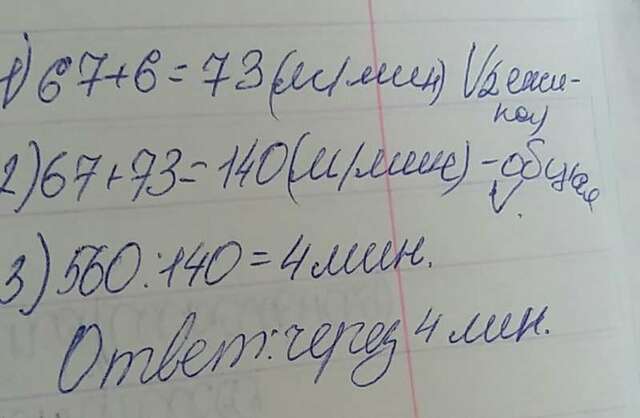 1) 67+6=73(м/мин) V(2 ежи-
ка)
2) 67+73=140(м/мин)-общая
V.
3) 560:140=4 мин.
Ответ: через 4 мин.